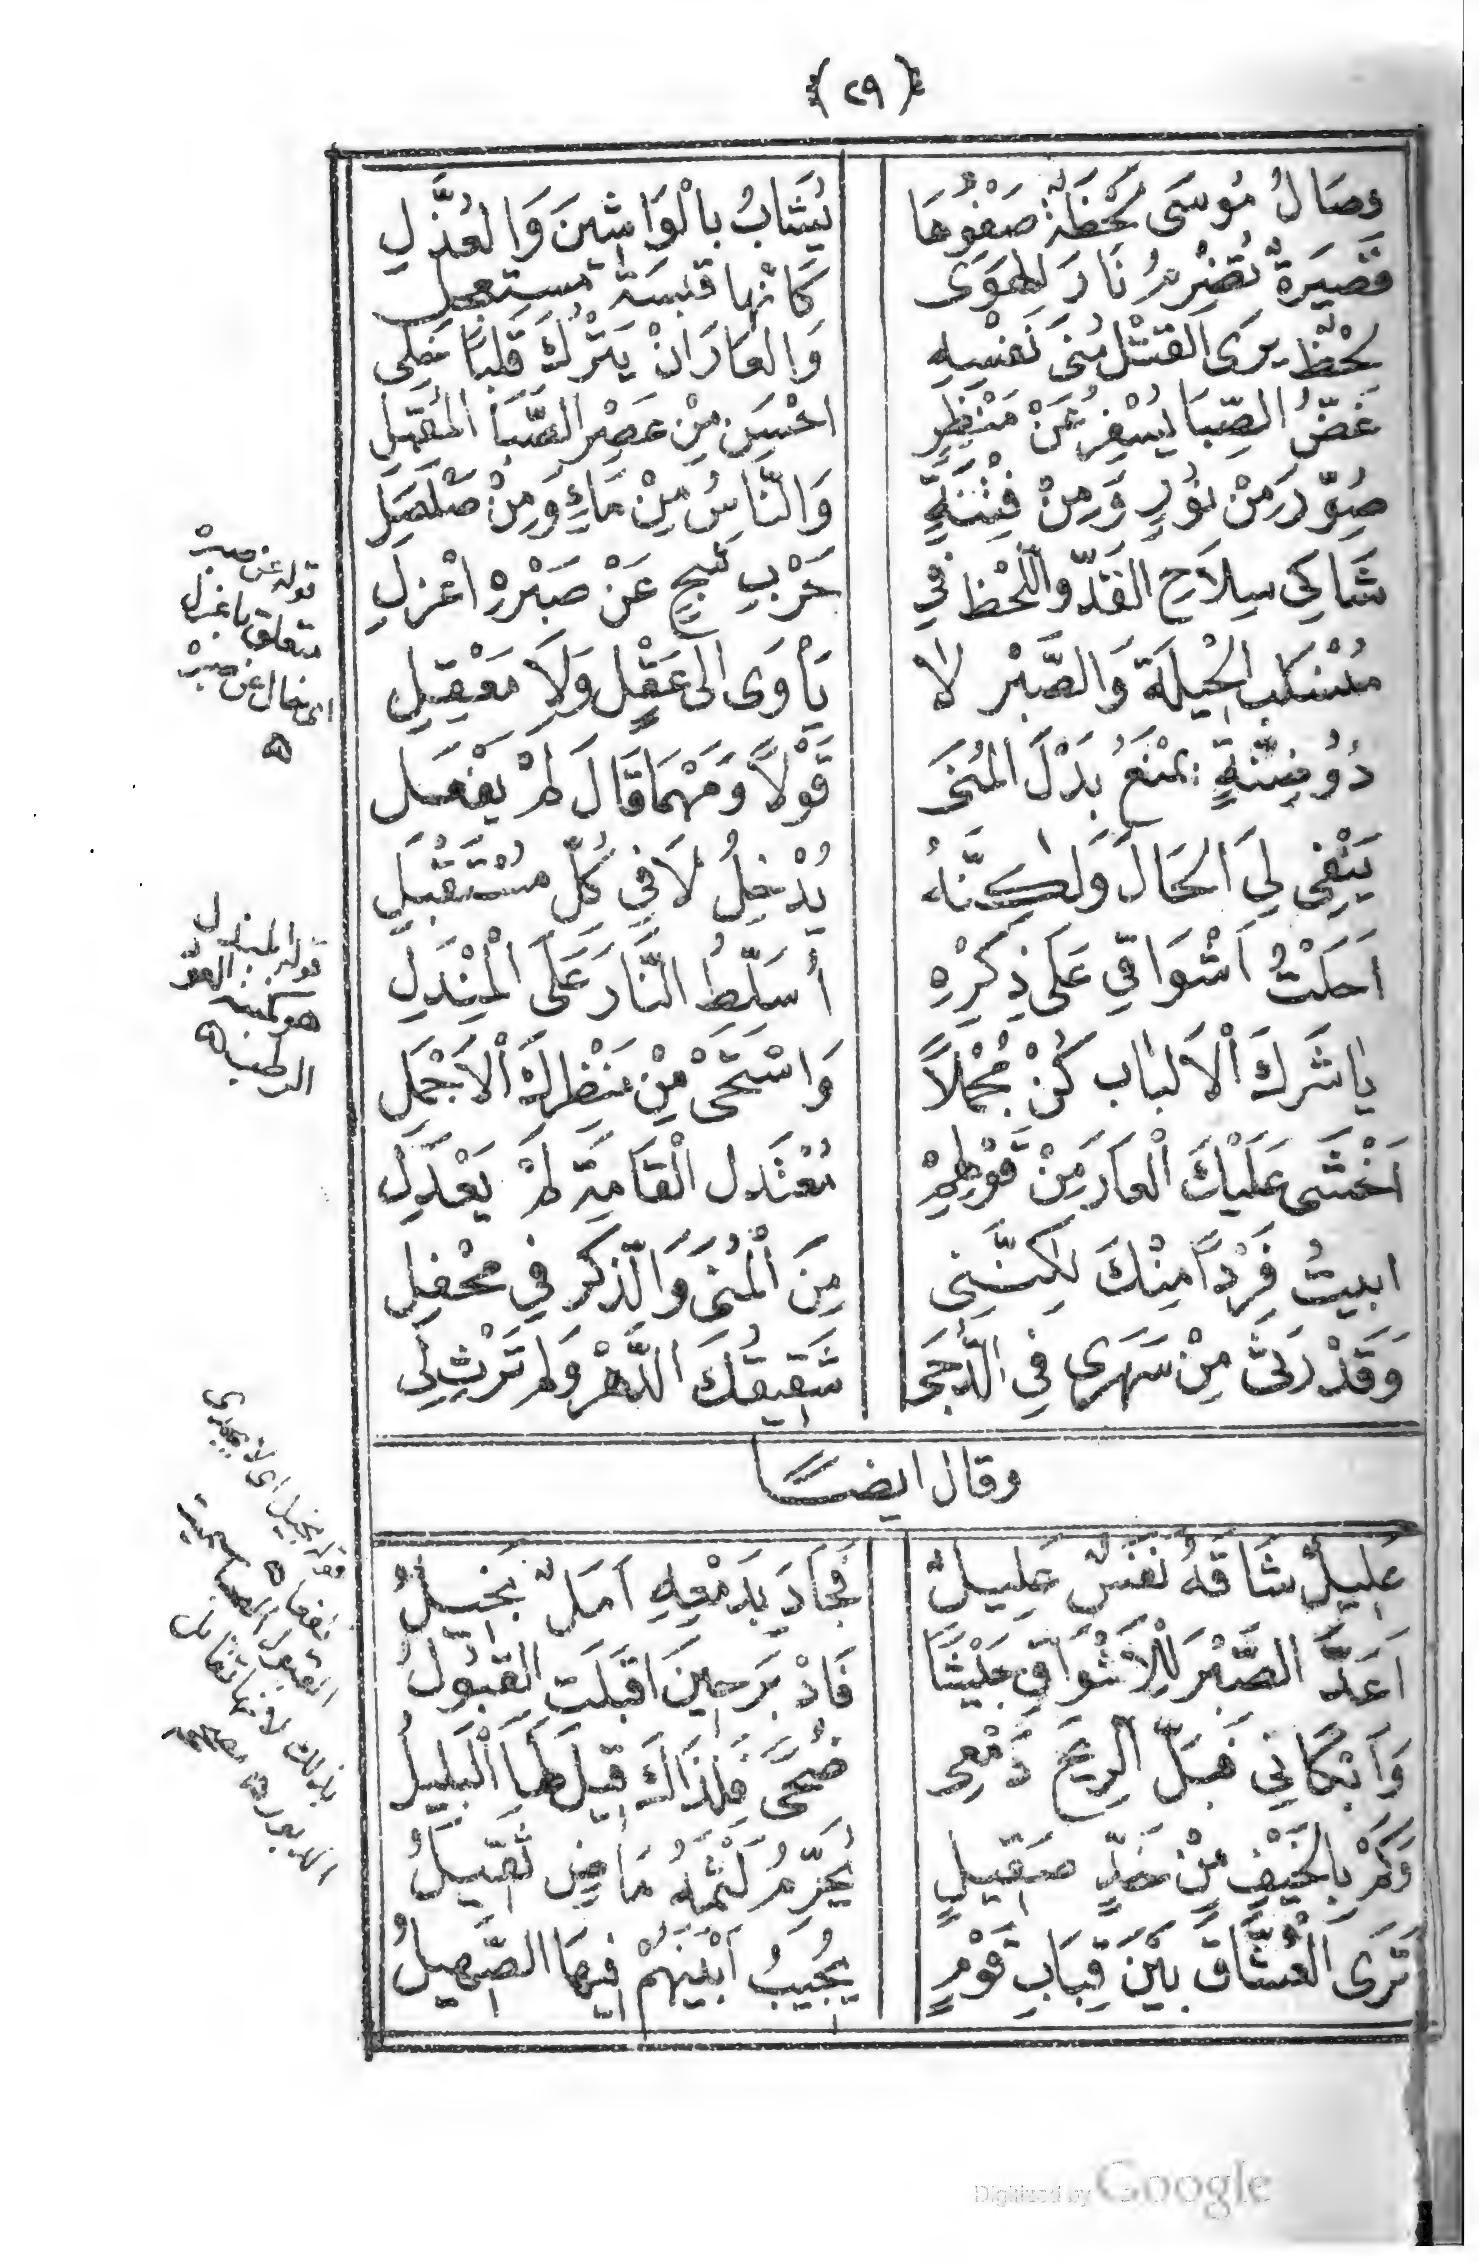 ﴿ ٢٩ ﴾
وِصَالُ مُوسَى لَحْظَةٌ صَفْوُهَا يُشَابُ بِالْوَاشِينَ وَالعُذَّلِ
قَصِيرَةٌ تُضْرِمُ نَارَ الهَوَى كَانَّهَا قَبْسَةُ مستعجل
لحْظٌ يرَى القَتْلَ مُنى نَفْسِهِ وَالعَارَ انْ يَتْرُكَ قَلْبًا خَلِى
غَضُّ الصِّبَا يُسْفِرُ عَنْ مَنْظَرٍ احْسَنَ مِنْ عَصْرِ الصِّبَا المُقْبِلِ
صُوِّرَ مِنْ نُورٍ وَمِنْ فِتْنَةٍ وَالنَّاسُ مِنْ مَاءٍ وَمِنْ صَلْصَلِ
شَاكِي سِلَاحِ القَدِّ وَاللَّحْظِ في حَرْبِ شَجٍ عَنْ صَبْرِهْ اعْزلِ
مُنْتَكب الحِيلَةِ وَالصَّبْرِ لا يَأْوَى الَى عَقْلٍ وَلَا مَعْقِلِ
ذُو ضِنَّةٍ يَمْنَعُ بَذْلَ المُنَى قَوْلًا وَمَهْمَا قَالَ لَمْ يَفْعَلِ
يَنْفِى لِىَ الحَالَ وَلكِنَّهُ يُدْخِلُ لَا فِي كُلِّ مُسْتَقْبَلِ
اَحَلْتُ اَشْوَاقِي عَلَى ذِكْرِهِ أُسَلِّطُ النَّارَ عَلَى الْمَنْدَلِ
يَا شَرَكَ الْأَلبَاب كُنْ مُجْمِلًا وَاسْتَحْىِ مِنْ مَنْظَرِكَ الْأَجْمَلِ
اَخْشَى عَلَيْكَ الْعَارَ مِنْ قَوْلِهِمْ مُعْتَدل الْقَامَةِ لَمْ يَعْدِلِ
ابيتُ فَرْدًا مِنْكَ لكِنَّنِى مِنَ الْمُنَى وَالذِّكرِ في مَحْفِلِ
وَقَدْ رَثَى مِنْ سَهَرِى فِي الدُّجَى شَقِيقُكَ البَدْرُ وَلم تَرْثِ لِي
وقال ايضا
عَلِيلٌ شَاقَهُ نَفَسٌ عَلِيلُ فَجَادَ بِدَمْعِهِ اَمَلٌ بَخِيلُ
اَعَدَّ الصَّبْرَ لِلْاَشْوَاقِ جَيْشًا فَادْبَرَ حِينَ اقْبَلَت القَبُولُ
وَاَبْكَانِي فَبَلَّ الرِّيحَ دَمْعِى ضُحًى فَلِذَاكَ قِيلَ لَهَا الْبَلِيلُ
وَكَمْ بِالخَيْفِ مِنْ خَدٍّ صَقِيلٍ يُحَرِّمُ لَثْمَهُ مَاضٍ صَقِيلُ
تَرَى العُشَّاقَ بَيْنَ قِبَابِ قَوْمٍ يُجِيبُ اَنِينَهُمْ فِيهَا الصَّهِيلُ
قوله عن صبره
متعلق باعزل
اى خال عن صبره
قوله المندل
هو كمنبر العود
الرطب
قوله بخيل اى لا يجدى
نفعا سميت
القبول
بذلك لانها تقابل
الدبور اه مصححه
Digitized by Google